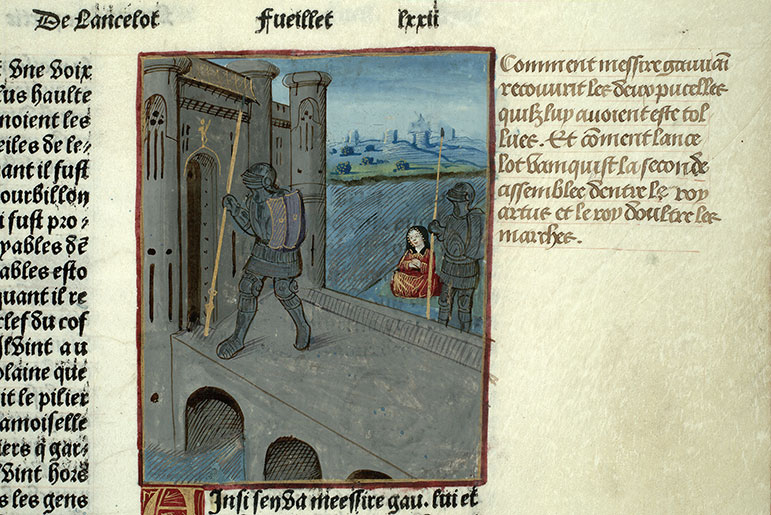 De Lancelot Fueillet lxxii
vne voix
lus haulte
noient les
eiles de le-
ant il fust
ourbillon
i fust pro-
yables dẽ
ables esto
quant il re
clef du cof
Il vint au
olaine que
it le pilier
amoiselle
iers q̃ gar-
vint hors
s les gens
Comment messire gauuaĩ
recouurit les deux pucelles
quilz luy auoient este tol
lues. Et cõment lance
lot vainquist la seconde
assemblee dentre le roy
artus et le roy doultre les
marches.
Ainsi sen va meessire gau. lui et